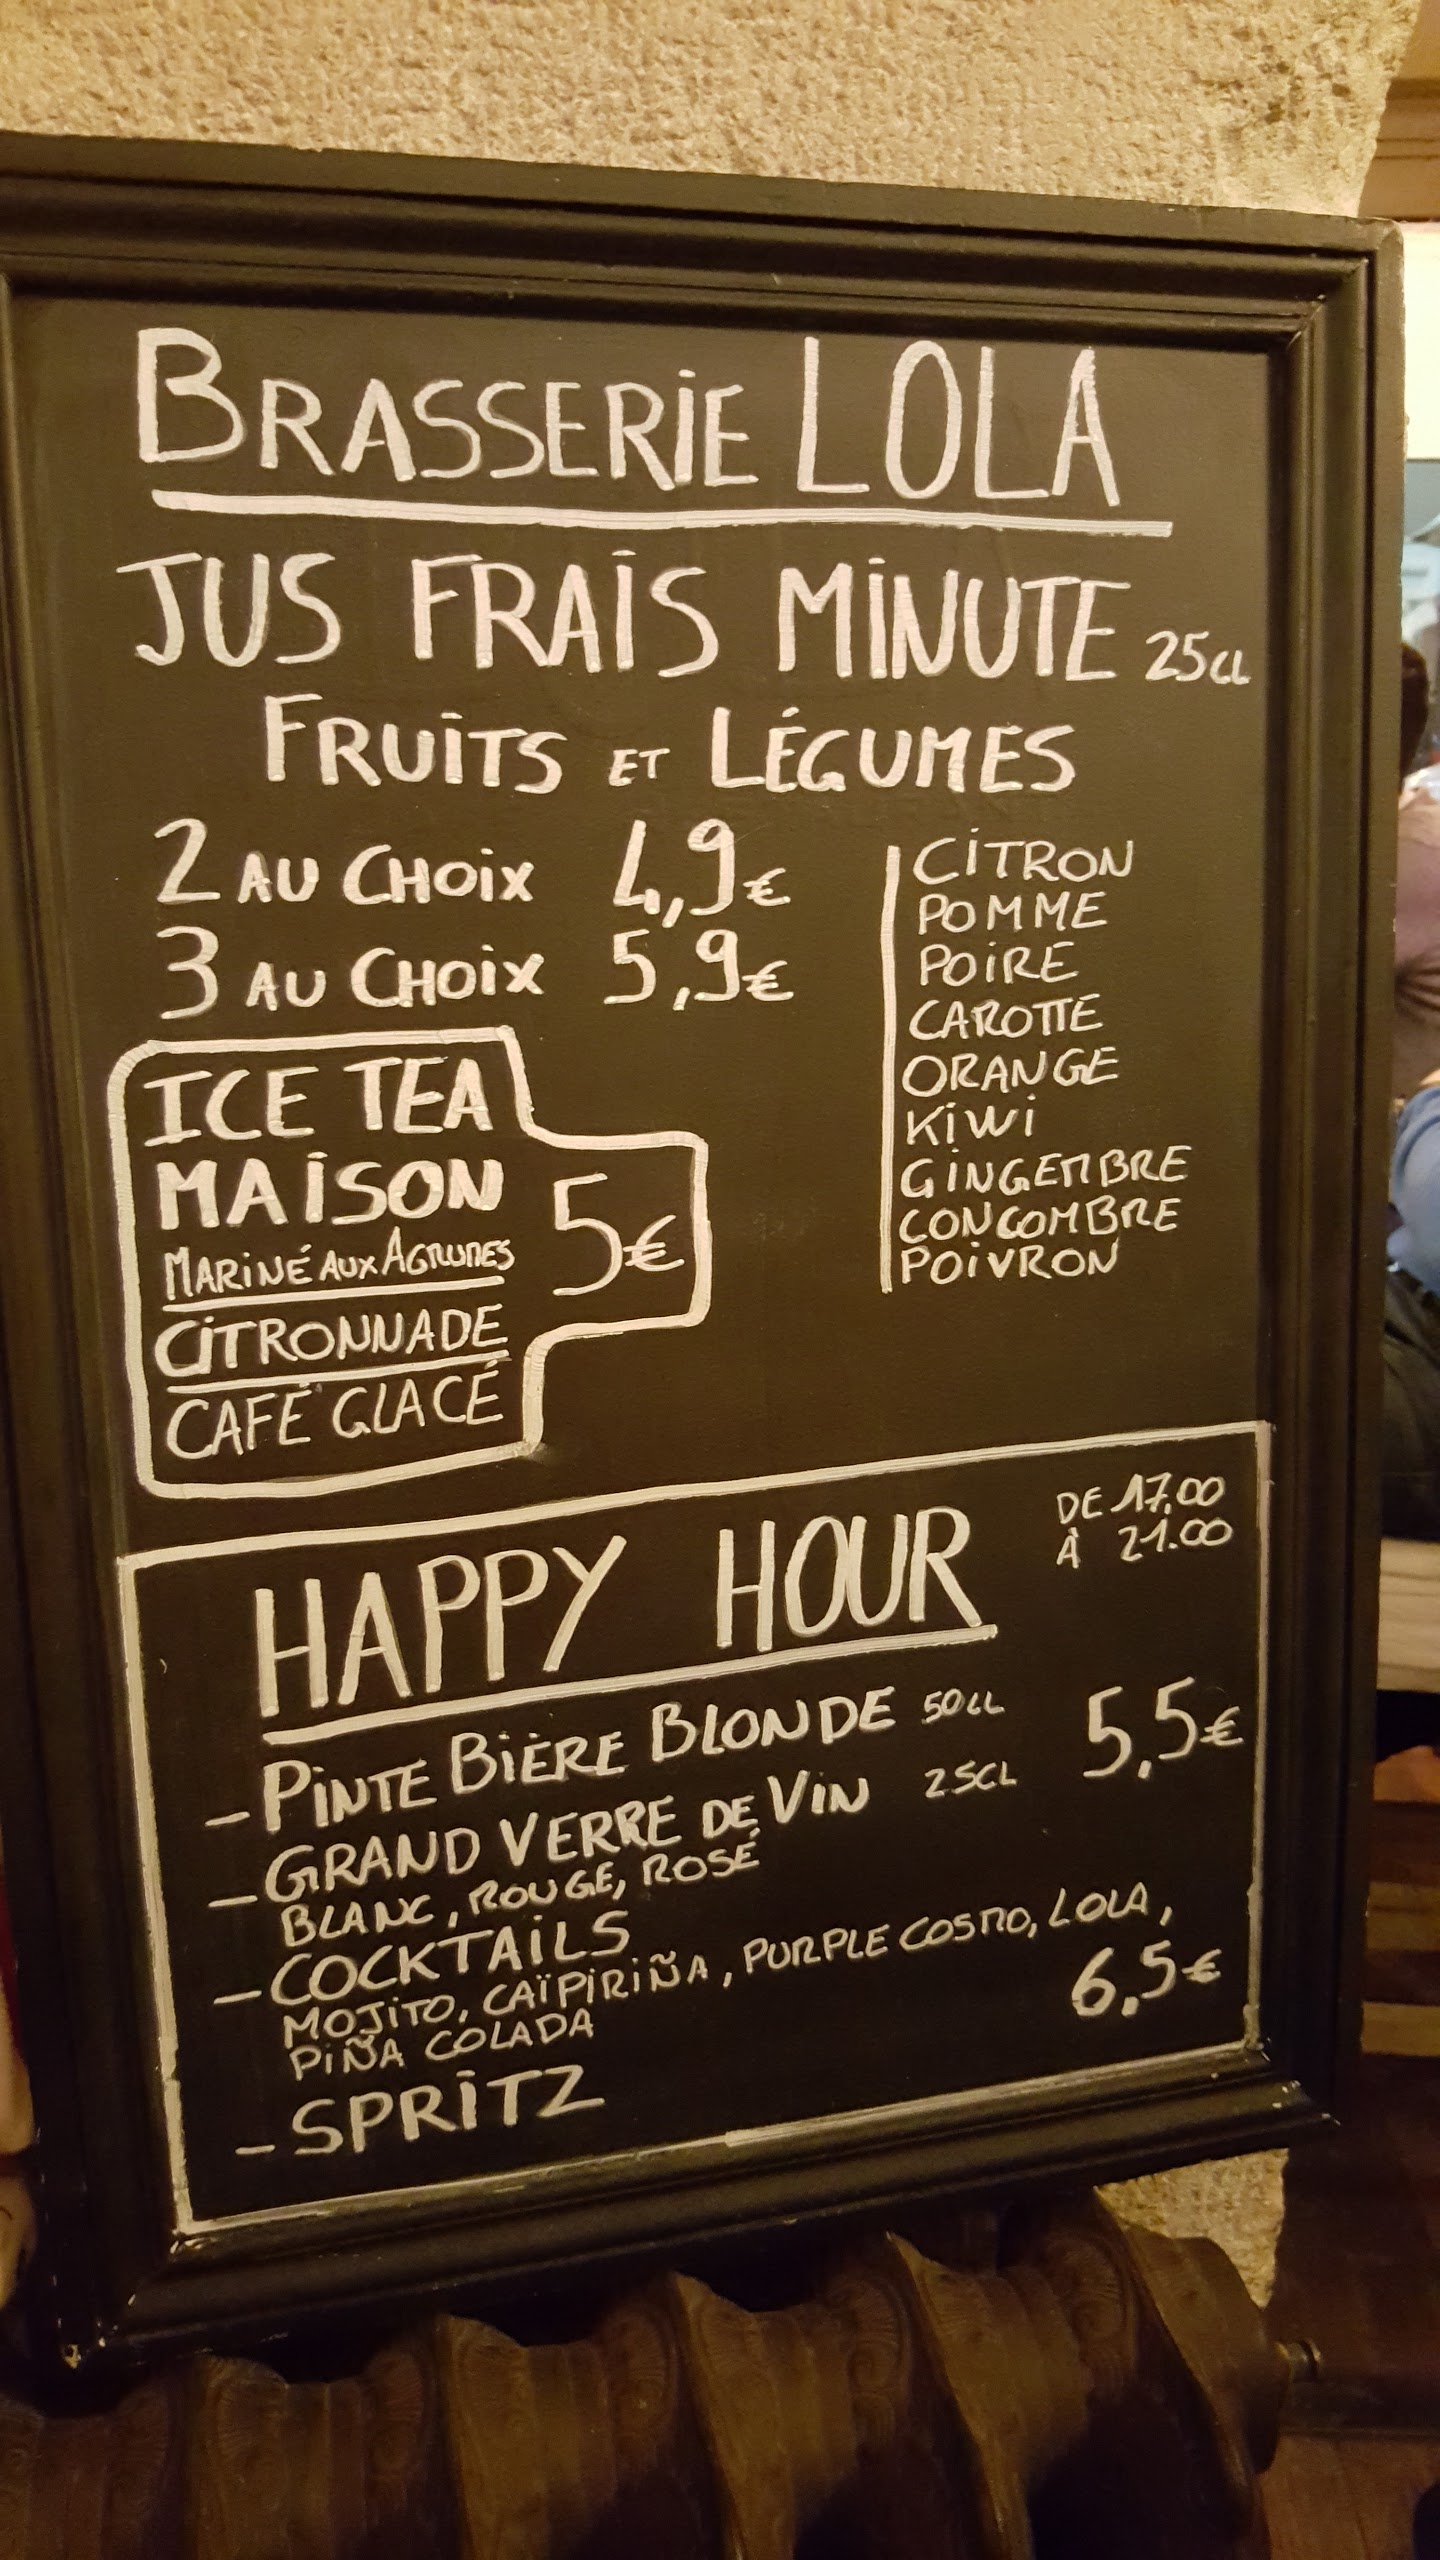 BRASSERIE LOLA
JUS FRAIS MINUTE 25CL
FRUITS ET LÉGUMES
2 AU CHOIX 4,9€
3 AU CHOIX 5,9€
CITRON
POMME
POIRE
CAROTTE
ORANGE
KIWI
GINGEMBRE
CONCOMBRE
POIVRON
ICE TEA
MAISON
MARINÉ AUX AGRUMES
5€
CITRONNADE
CAFÉ GLACÉ
HAPPY HOUR
DE 17.00
À 21.00
- PINTE BIÈRE BLONDE 50CL 5,5€
- GRAND VERRE DE VIN 25CL
BLANC, ROUGE, ROSÉ
- COCKTAILS
MOJITO, CAÏPIRIÑA, PURPLE COSMO, LOLA,
PIÑA COLADA 6,5€
- SPRITZ